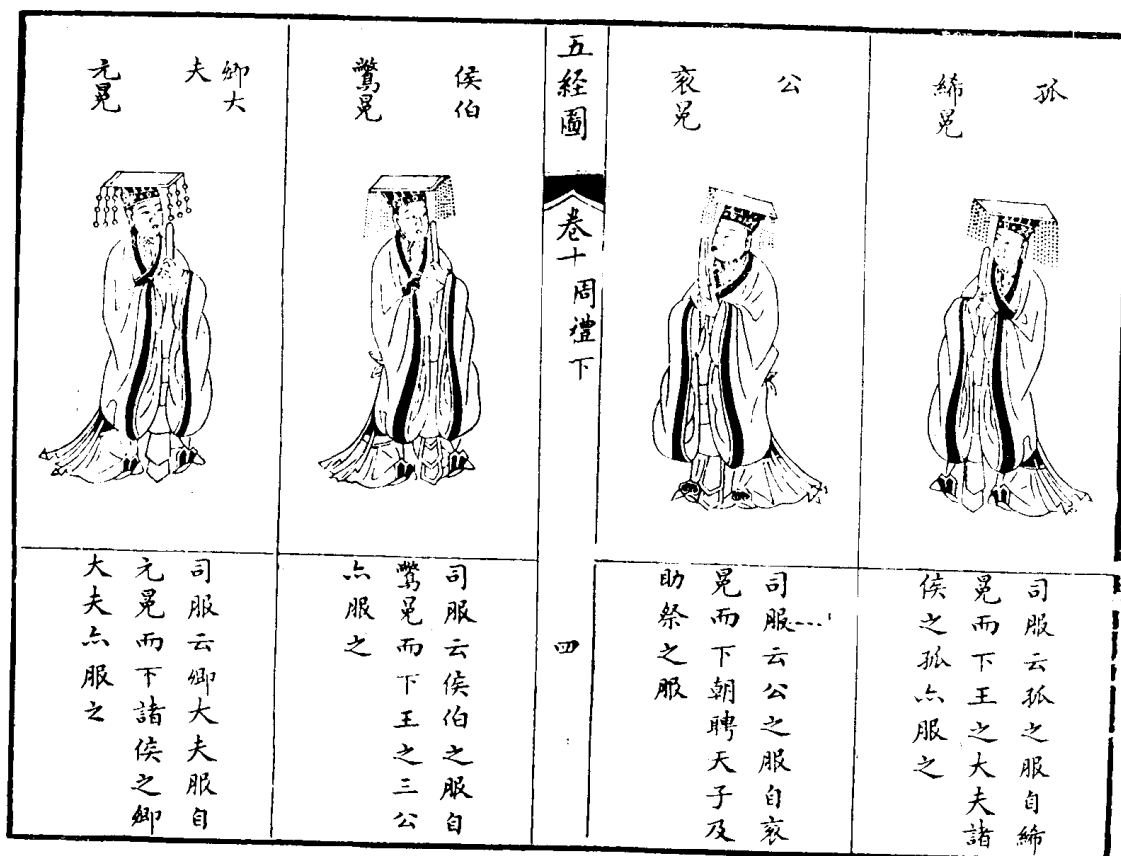 孤
絺冕
司服云孤之服自絺
冕而下王之大夫諸
侯之孤亦服之
公
衮冕
司服云公之服自衮
冕而下朝聘天子及
助祭之服
五経圖
卷十周禮下
四
侯伯
鷩冕
司服云侯伯之服自
鷩冕而下王之三公
亦服之
卿大
夫
元冕
司服云卿大夫服自
元冕而下諸侯之卿
大夫亦服之